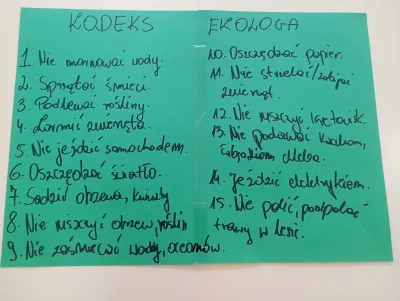 KODEKS EKOLOGA
1. Nie marnować wody.
2. Sprzątać śmieci.
3. Podlewać rośliny.
4. Karmić zwierzęta.
5. Nie jeździć samochodem.
6. Oszczędzać światło.
7. Sadzić drzewa, kwiaty
8. Nie niszczyć drzew, roślin
9. Nie zaśmiecać wody, oceanów.
10. Oszczędzać papier.
11. Nie strzelać/zabijać
zwierząt.
12. Nie niszczyć karmnik.
13. Nie podawać kaczkom,
łabędziom chleba.
14. Jeździć elektrykiem.
15. Nie palić, podpalać
trawy w lesie.